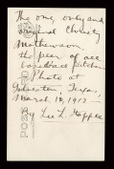 The one, only and
original Christy
Mathewson
the peer of all
baseball pitchers
Photo at
Galveston, Texas,
March 10, 1912
By Lee L.
POST